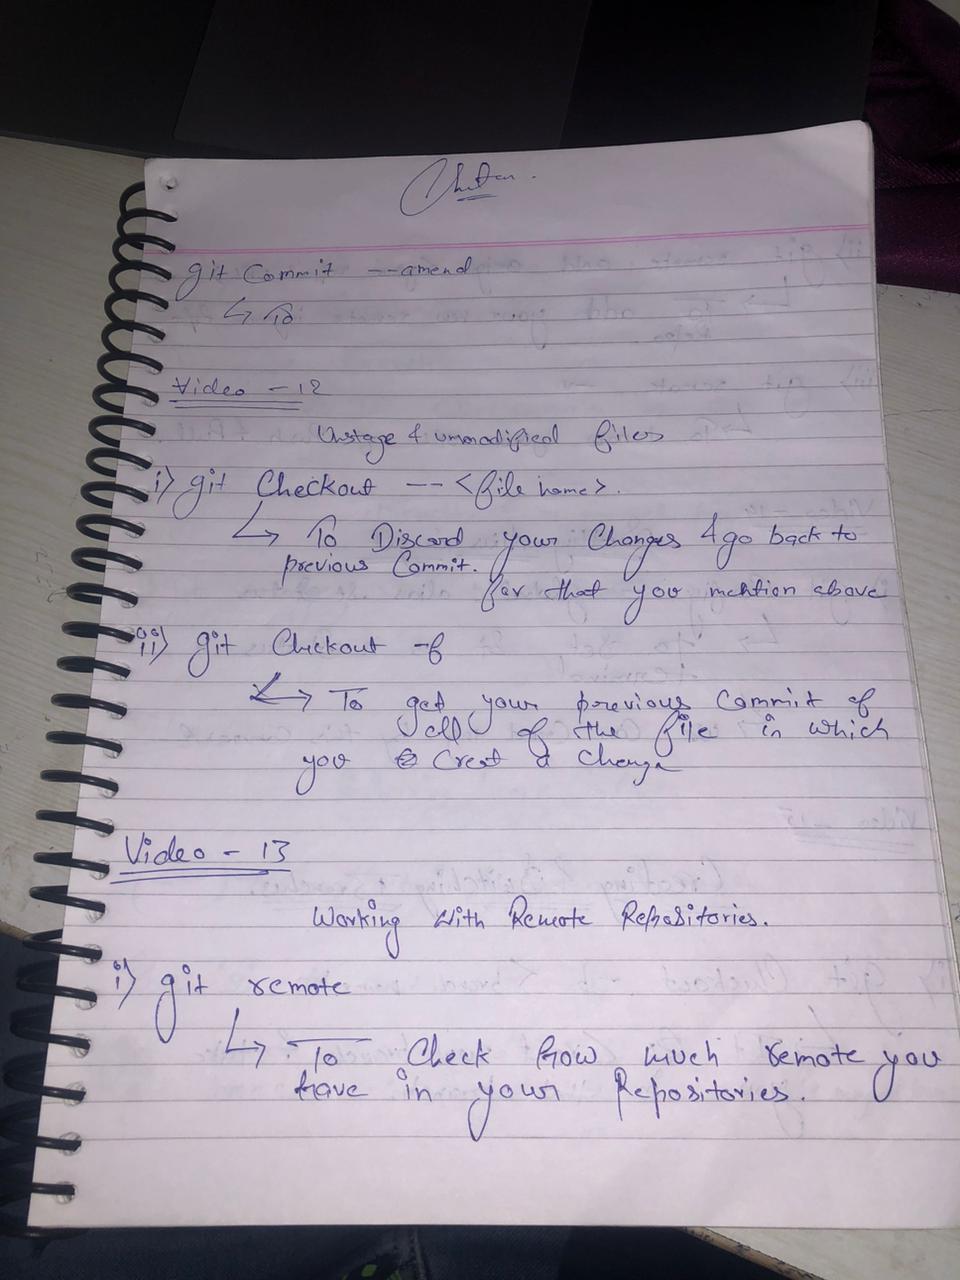 Chetan.
git Commit --amend
↳ To
Video - 12
Unstage & unmodified files
i) git Checkout -- <file name>.
↳ To Discard your Changes & go back to
previous Commit.
for that you mention above
ii) git Checkout -f
↳ To get your previous Commit of
all of the file in which
you Creat a Change
Video - 13
Working With Remote Repositories.
i) git remote
↳ To Check how much remote you
have in your Repositories.